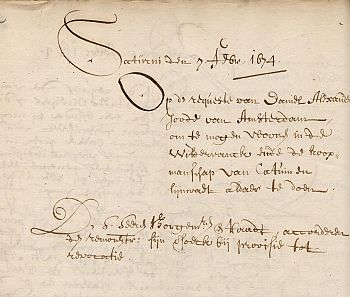 Saturni den 7 7bris 1674.
Op de requeste van Daniel Alexander
Joode van Amsterdam
om te mogen woonen inde
ende de koop-
manschap van Catuin en
lijnwadt aldaer te doen
D. H. Heeren Borgemrs. Raedt, accorderen
de remonstr: sijn versoeck bij provisie tot
revocatie